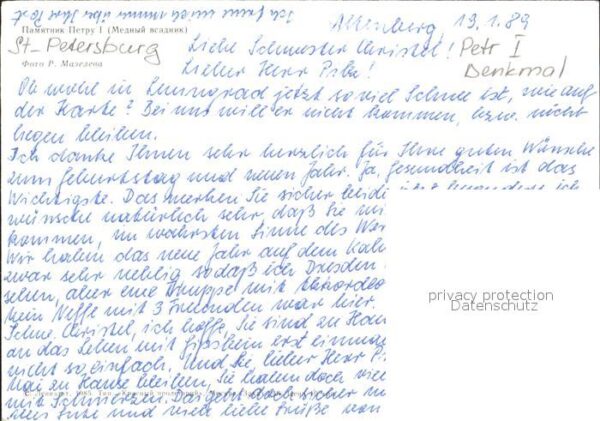 Ich freue mich immer über Ihre Post
Altenberg, 19.1.89
Памятник Петру I (Медный всадник)
St-Petersburg
Фото Р. Мазелева
Liebe Schwester Christel!
Lieber Herr
Petr I
Denkmal
Ob wohl in Leningrad jetzt so viel Schnee ist, wie auf
der Karte? Bei uns will er nicht kommen, bzw. nicht
liegen bleiben.
Ich danke Ihnen sehr herzlich für Ihre guten Wünsche
zum Geburtstag und neuen Jahr. Ja, Gesundheit ist das
Wichtigste. Das merken Sie sicher beide
wünsche natürlich sehr, daß Sie
kommen, im wahrsten Sinne des
Wir haben das neue Jahr auf dem
war sehr neblig sodaß ich Dresden
sehen, aber eine Gruppe mit
Mein Neffe mit 3 Freunden war hier.
Christel, ich hoffe, Sie sind
an das Leben mit Gipsbein erst einmal
nicht so einfach. Und Sie, lieber Herr
zu Hause bleiben, Sie haben doch
mit Schmerzen. Das geht doch sicher
Alles Gute und viele liebe Grüße von
privacy protection
Datenschutz